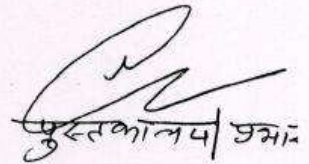 पुस्तकालया प्रभार